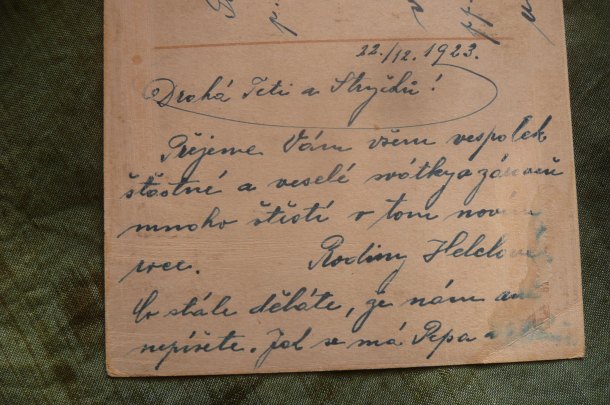 22./12. 1923.
Drahá Teti a Strýčků!
Přejeme Vám všem vespolek
šťastné a veselé svátky a zároveň
mnoho štěstí v tom novém
roce. Rodiny
Co stále děláte, že nám ani
nepíšete. Jak se má Pepa a